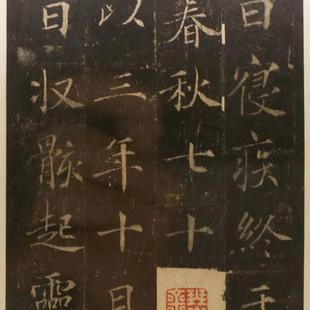 日寑疾終于
春秋七十
以三年十月
日収骸起靈